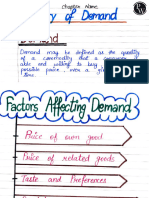 Chapter Name
y of Demand
PW
Demand
Demand may be defined as the quantity
of a commodity that a consumer is
able and willing to buy, at each
possible price, over a given
time.
Factors Affecting Demand
Price of own good
Price of related goods
Taste and Preferences